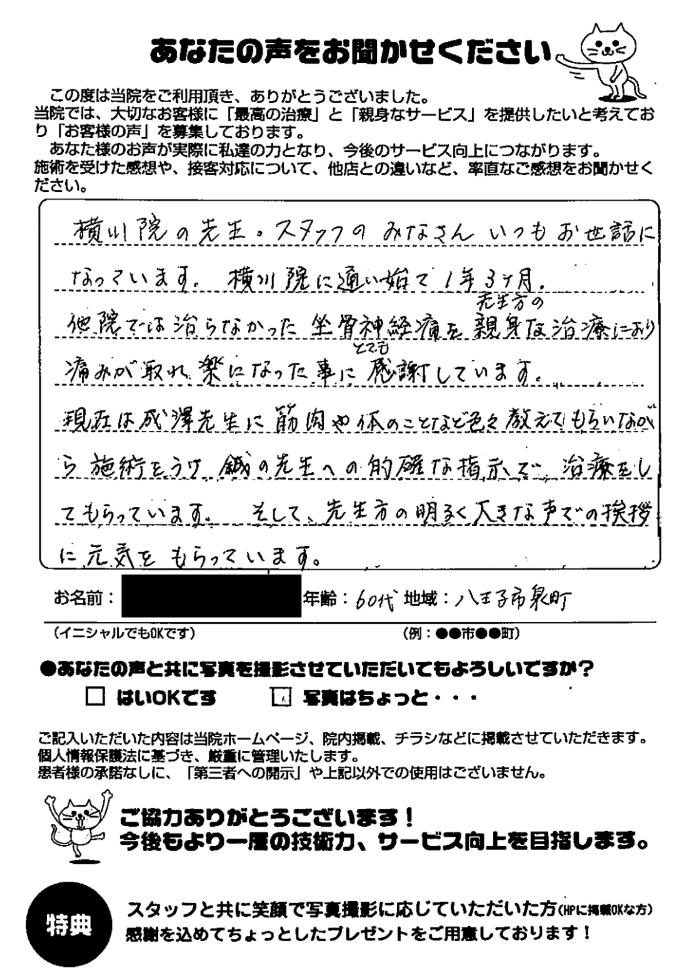 あなたの声をお聞かせください
この度は当院をご利用頂き、ありがとうございました。
当院では、大切なお客様に「最高の治療」と「親身なサービス」を提供したいと考えてお
り「お客様の声」を募集しております。
あなた様のお声が実際に私達の力となり、今後のサービス向上につながります。
施術を受けた感想や、接客対応について、他店との違いなど、率直なご感想をお聞かせく
ださい。
横川院の先生。スタッフの みなさん いつも お世話に
なっています。 横川院に通い始て 1年3ヶ月。
先生方の
他院では治らなかった 坐骨神経痛を 親身な治療により
とても
痛みが取れ 楽になった事に 感謝しています。
現在は成澤先生に 筋肉や体のことなど色々教えてもらいなが
ら 施術をうけ 鍼の先生への的確な指示で、治療をし
てもらっています。 そして、先生方の明るく大きな声での挨拶
に元気を もらっています。
お名前： 年齢：60代 地域：八王子市泉町
(イニシャルでもOKです) (例：●●市●●町)
●あなたの声と共に写真を撮影させていただいてもよろしいですか？
□ はいOKです □ 写真はちょっと・・・
ご記入いただいた内容は当院ホームページ、院内掲載、チラシなどに掲載させていただきます。
個人情報保護法に基づき、厳重に管理いたします。
患者様の承諾なしに、「第三者への開示」や上記以外での使用はございません。
ご協力ありがとうございます！
今後もより一層の技術力、サービス向上を目指します。
特典
スタッフと共に笑顔で写真撮影に応じていただいた方(HPに掲載OKな方)
感謝を込めてちょっとしたプレゼントをご用意しております！